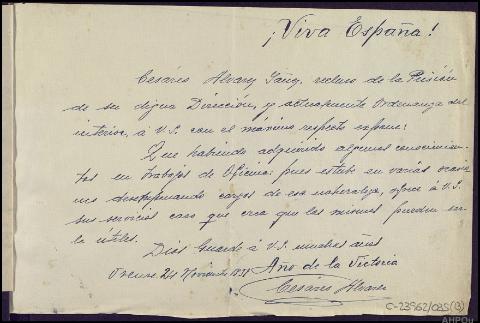 ¡Viva España!
Cesáreo Alvarez Yáñez, recluso de la Prisión
de su digna Dirección, y actualmente Ordenanza del
interior, á V.S. con el máximo respeto expone:
Que habiendo adquirido algunos conocimien-
tos en trabajos de Oficina; pues estube en varias ocasio
nes desempeñando cargos de esa naturaleza, ofrece á V.S.
sus servicios caso que crea que los mismos puedan ser-
le útiles.
Dios Guarde á V.S. muchos años
Orense 24 Noviembre Año de la Victoria
Cesáreo Alvarez
C-23962/085(3)
AHPOu